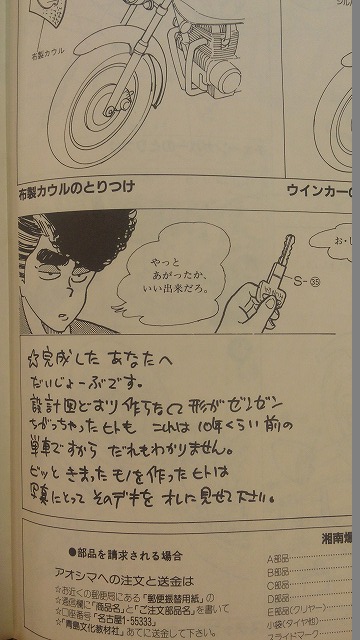 布製カウル
布製カウルのとりつけ
ウインカーの
やっと
あがったか、
いい出来だろ。
お・し
S-㉟
☆完成した あなたへ
だいじょーぶです。
設計図どおり作らなくて 形がゼンゼン
ちがっちゃったヒトも これは 10年くらい前の
単車ですから だれもわかりません。
ビッと きまったモノを作ったヒトは
写真にとって そのデキを オレに見せて下さい。
●部品を請求される場合
アオシマへの注文と送金は
☆お近くの郵便局にある「郵便振替用紙」の
☆通信欄に「商品名」と「ご注文部品名」を書いて
☆口座番号「名古屋1-55333」
☆「青島文化教材社」あてに送金して下さい。
湘南爆
A部品
B部品
C部品
D部品
E部品(クリヤー)
小袋(タイヤ他)
スライドマーク